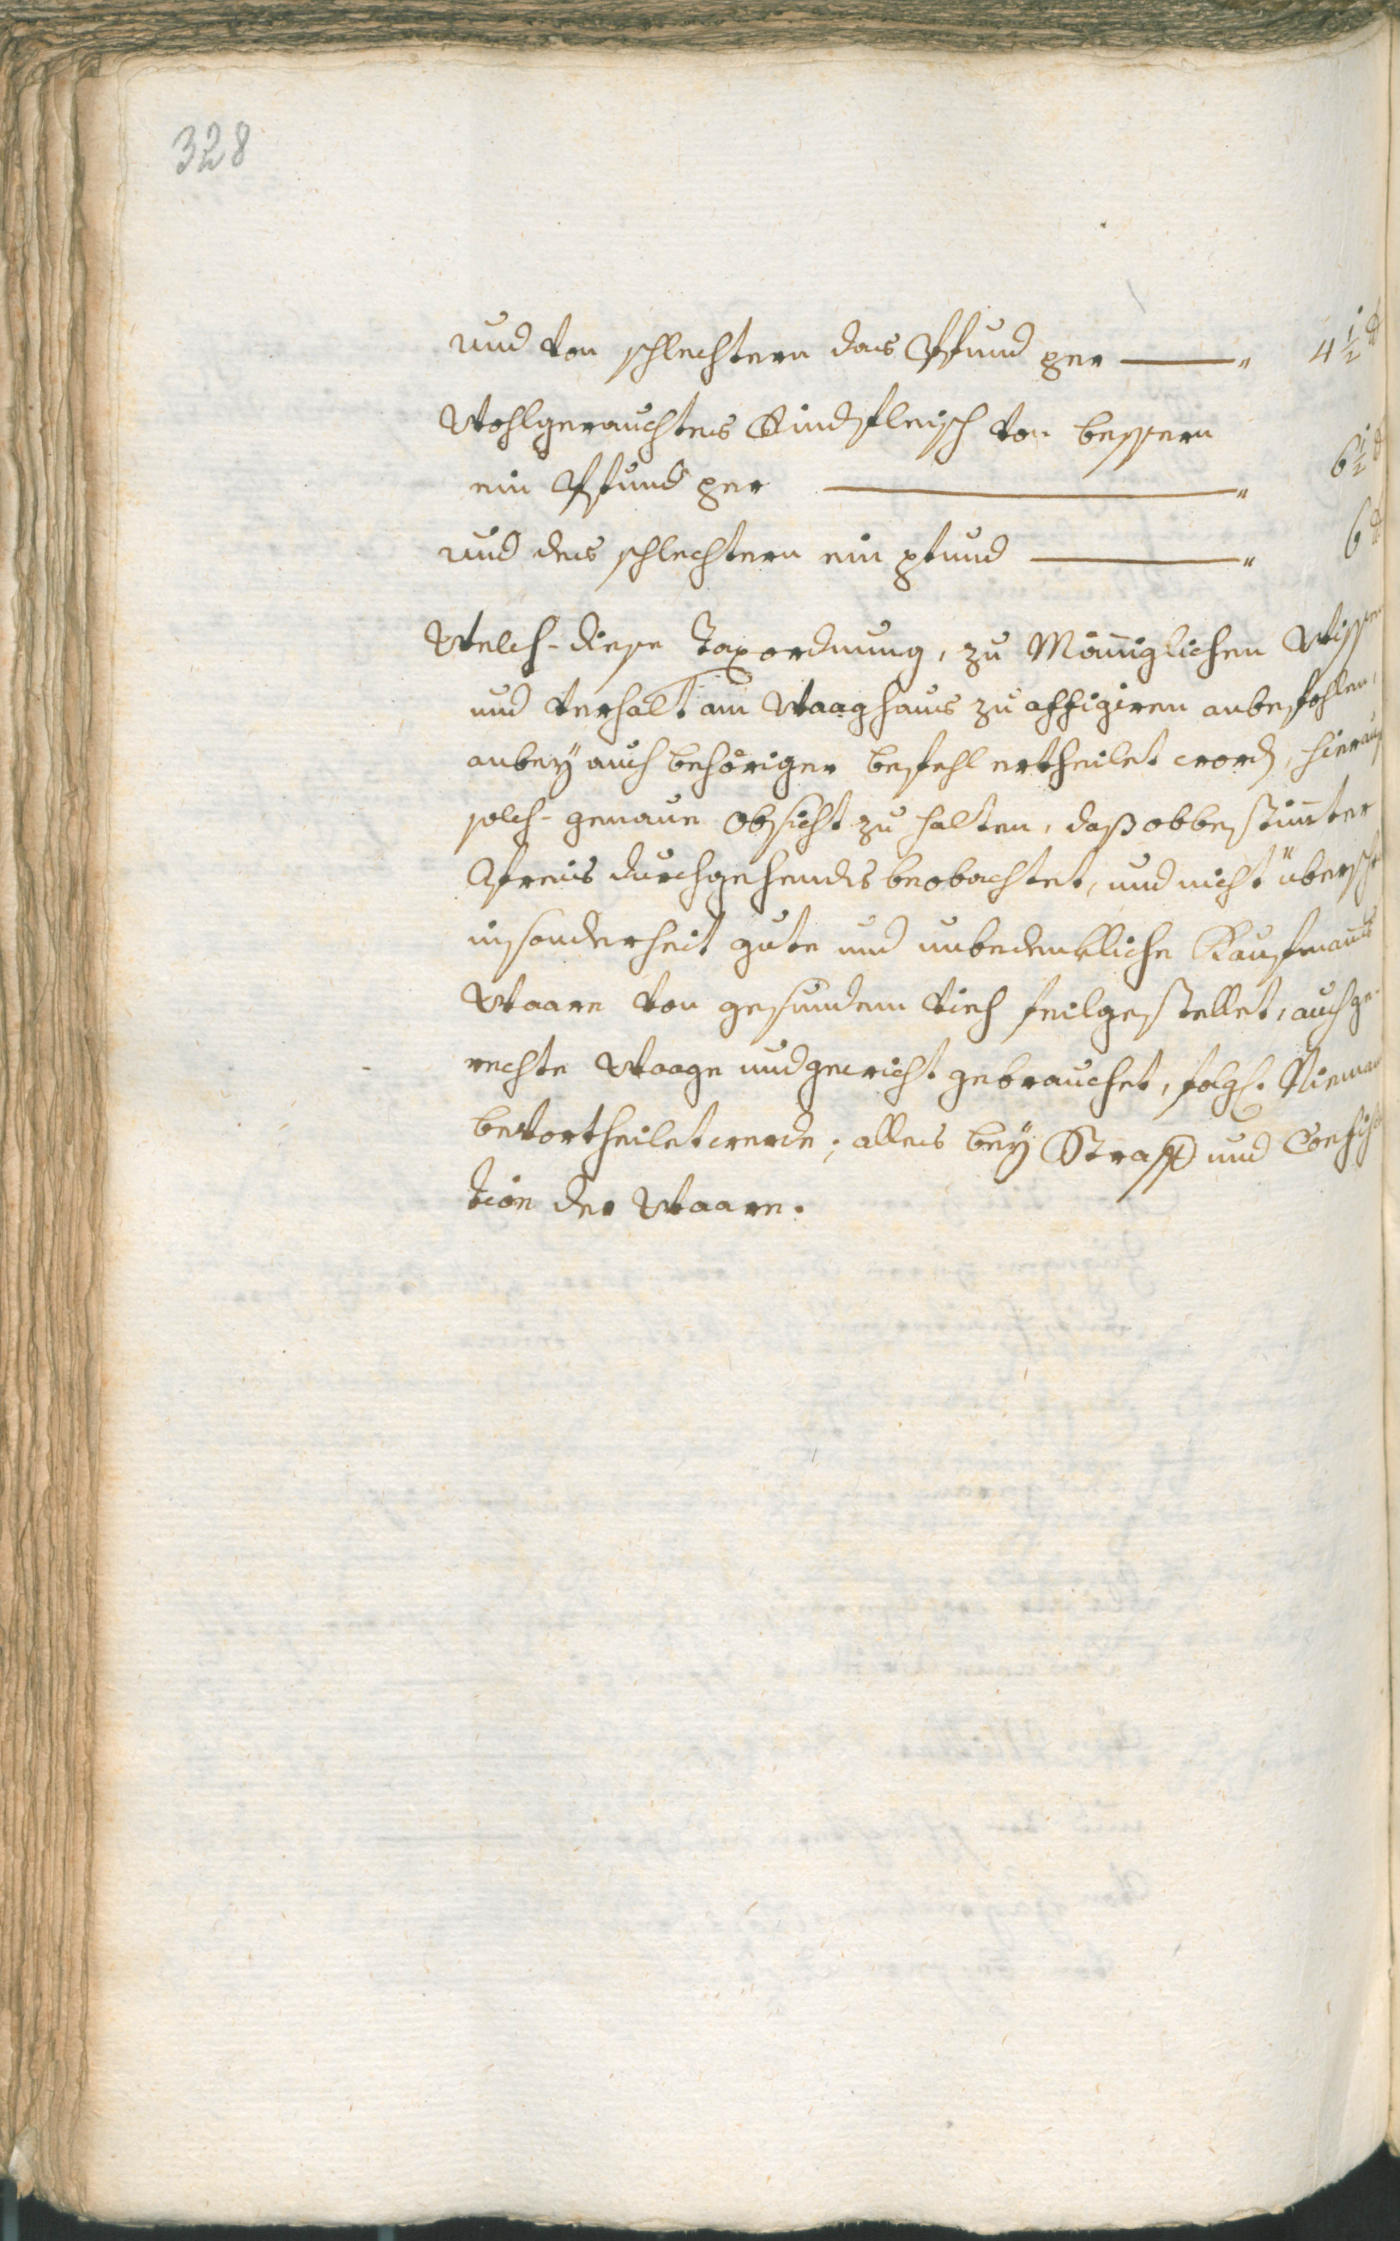 328
und von schlechtern das Pfund per ——— " 4 1/2 d
Wohlgerauchtes Rindfleisch von bessern
ein Pfund per ——— " 6 1/2 d
und des schlechtern ein pfund ——— " 6 d
Welch-diese Taxordnung, zu Män̄iglichen Wissen
und Verhalt am Waaghaus zu affigiren anbefohlen,
anbeÿ auch behöriger befehl ertheilet word, hierauf
solch- genaue Obsicht zu halten, daß obbestim̄ter
Preis durchgehends beobachtet, und nicht übersch
insonderheit gute und unbedenkliche Kaufman̄s
Waare von gesundem Vieh feilgestellet, auch ge-
rechte Waage und gewicht gebrauchet, folgl. Nieman
bevortheilet werde; alles beÿ Straff und Confisca
tion der Waare.